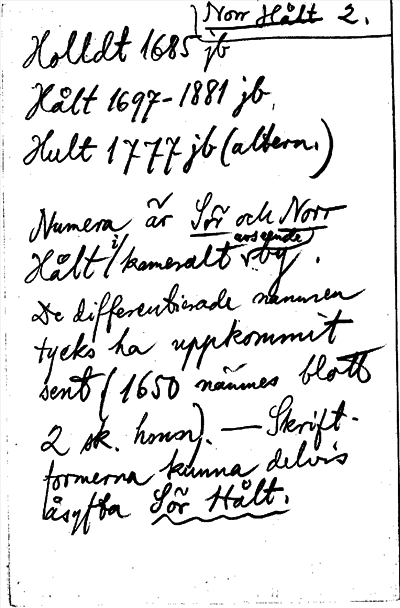 Norr Hålt 2.
Holldt 1685 jb
Hålt 1697-1881 jb.
Hult 1777 jb (altern.)
Numera är Sör och Norr
Hålt i kameralt avseende by.
De differentierade namnen
tycks ha uppkommit
sent (1650 nämnes blott
2 sk. hmn). — Skrift-
formerna kunna delvis
åsyfta Sör Hålt.